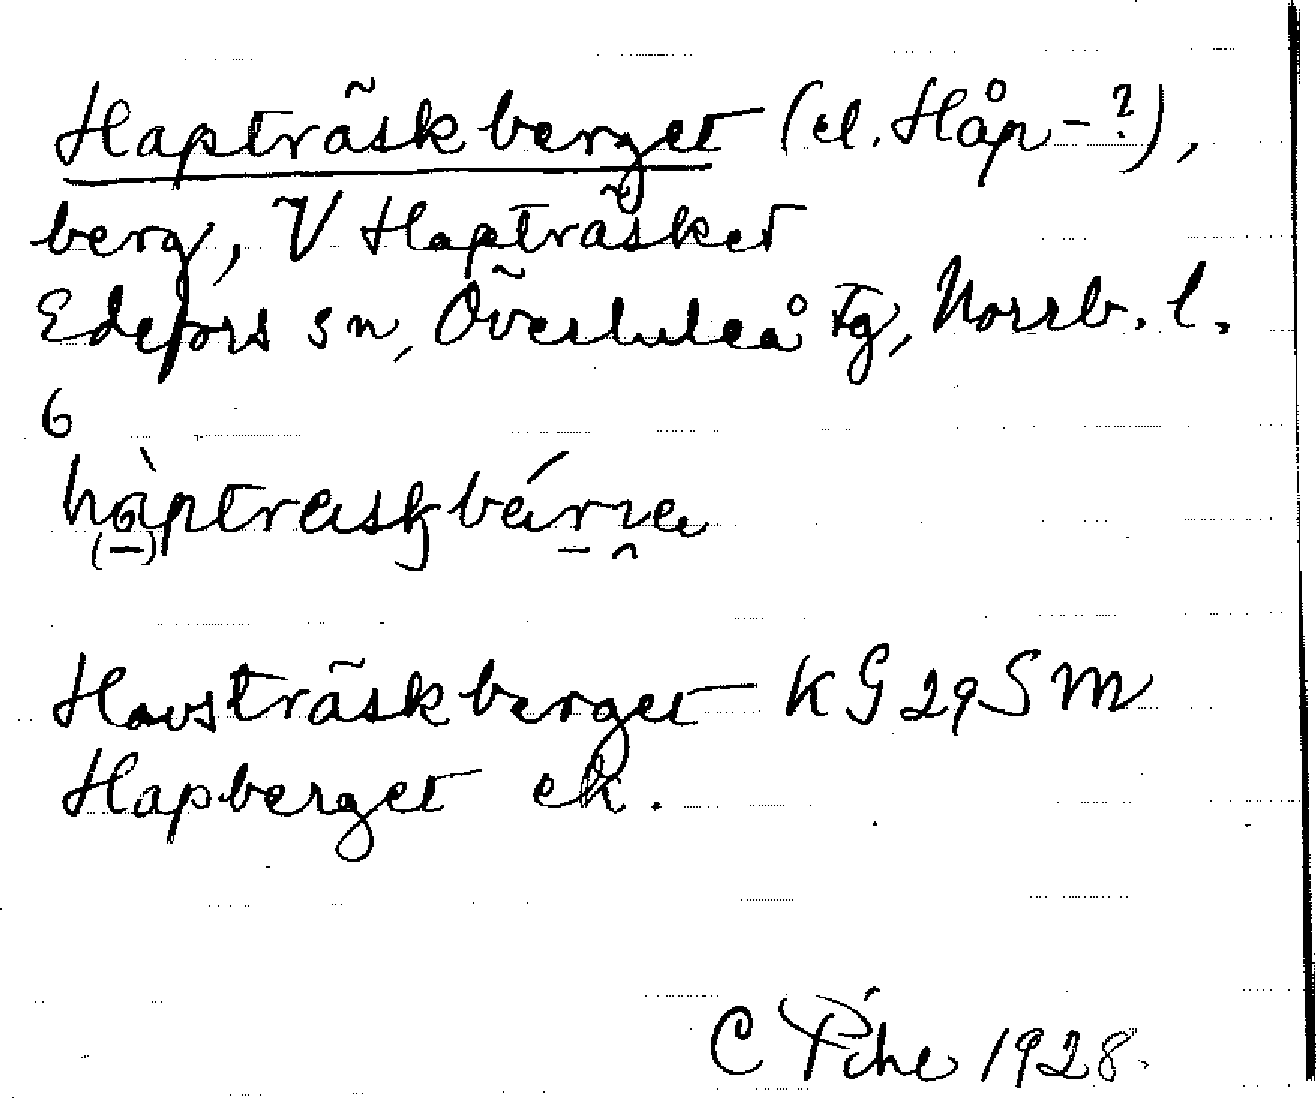 Hapträskberget (el. Håp-?),
berg, V Hapträsket
Edefors sn, Överluleå tg, Norrb. l.
6
hàptraskbárɪa
Havsträskberget KG 29 S M
Hapberget ek.
C Pihe 1928.